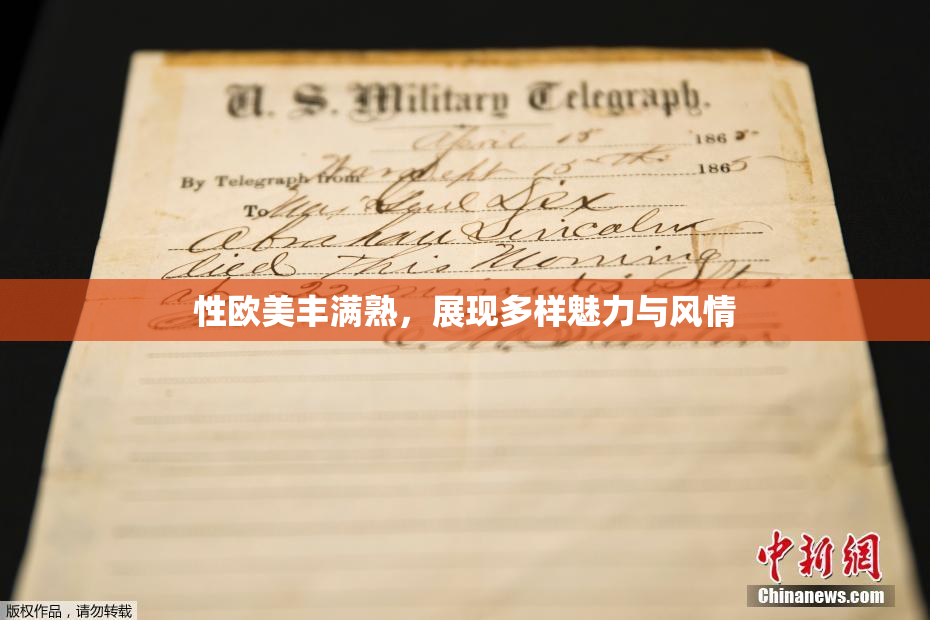 U. S. Military Telegraph.
April 15 1865
By Telegraph from War Dept 15th 1865
To Maj Genl Dix
Abraham Lincoln
died This Morning
at 22 minutes after
性欧美丰满熟，展现多样魅力与风情
E. M. Stanton
中新網
Chinanews.com
版权作品，请勿转载